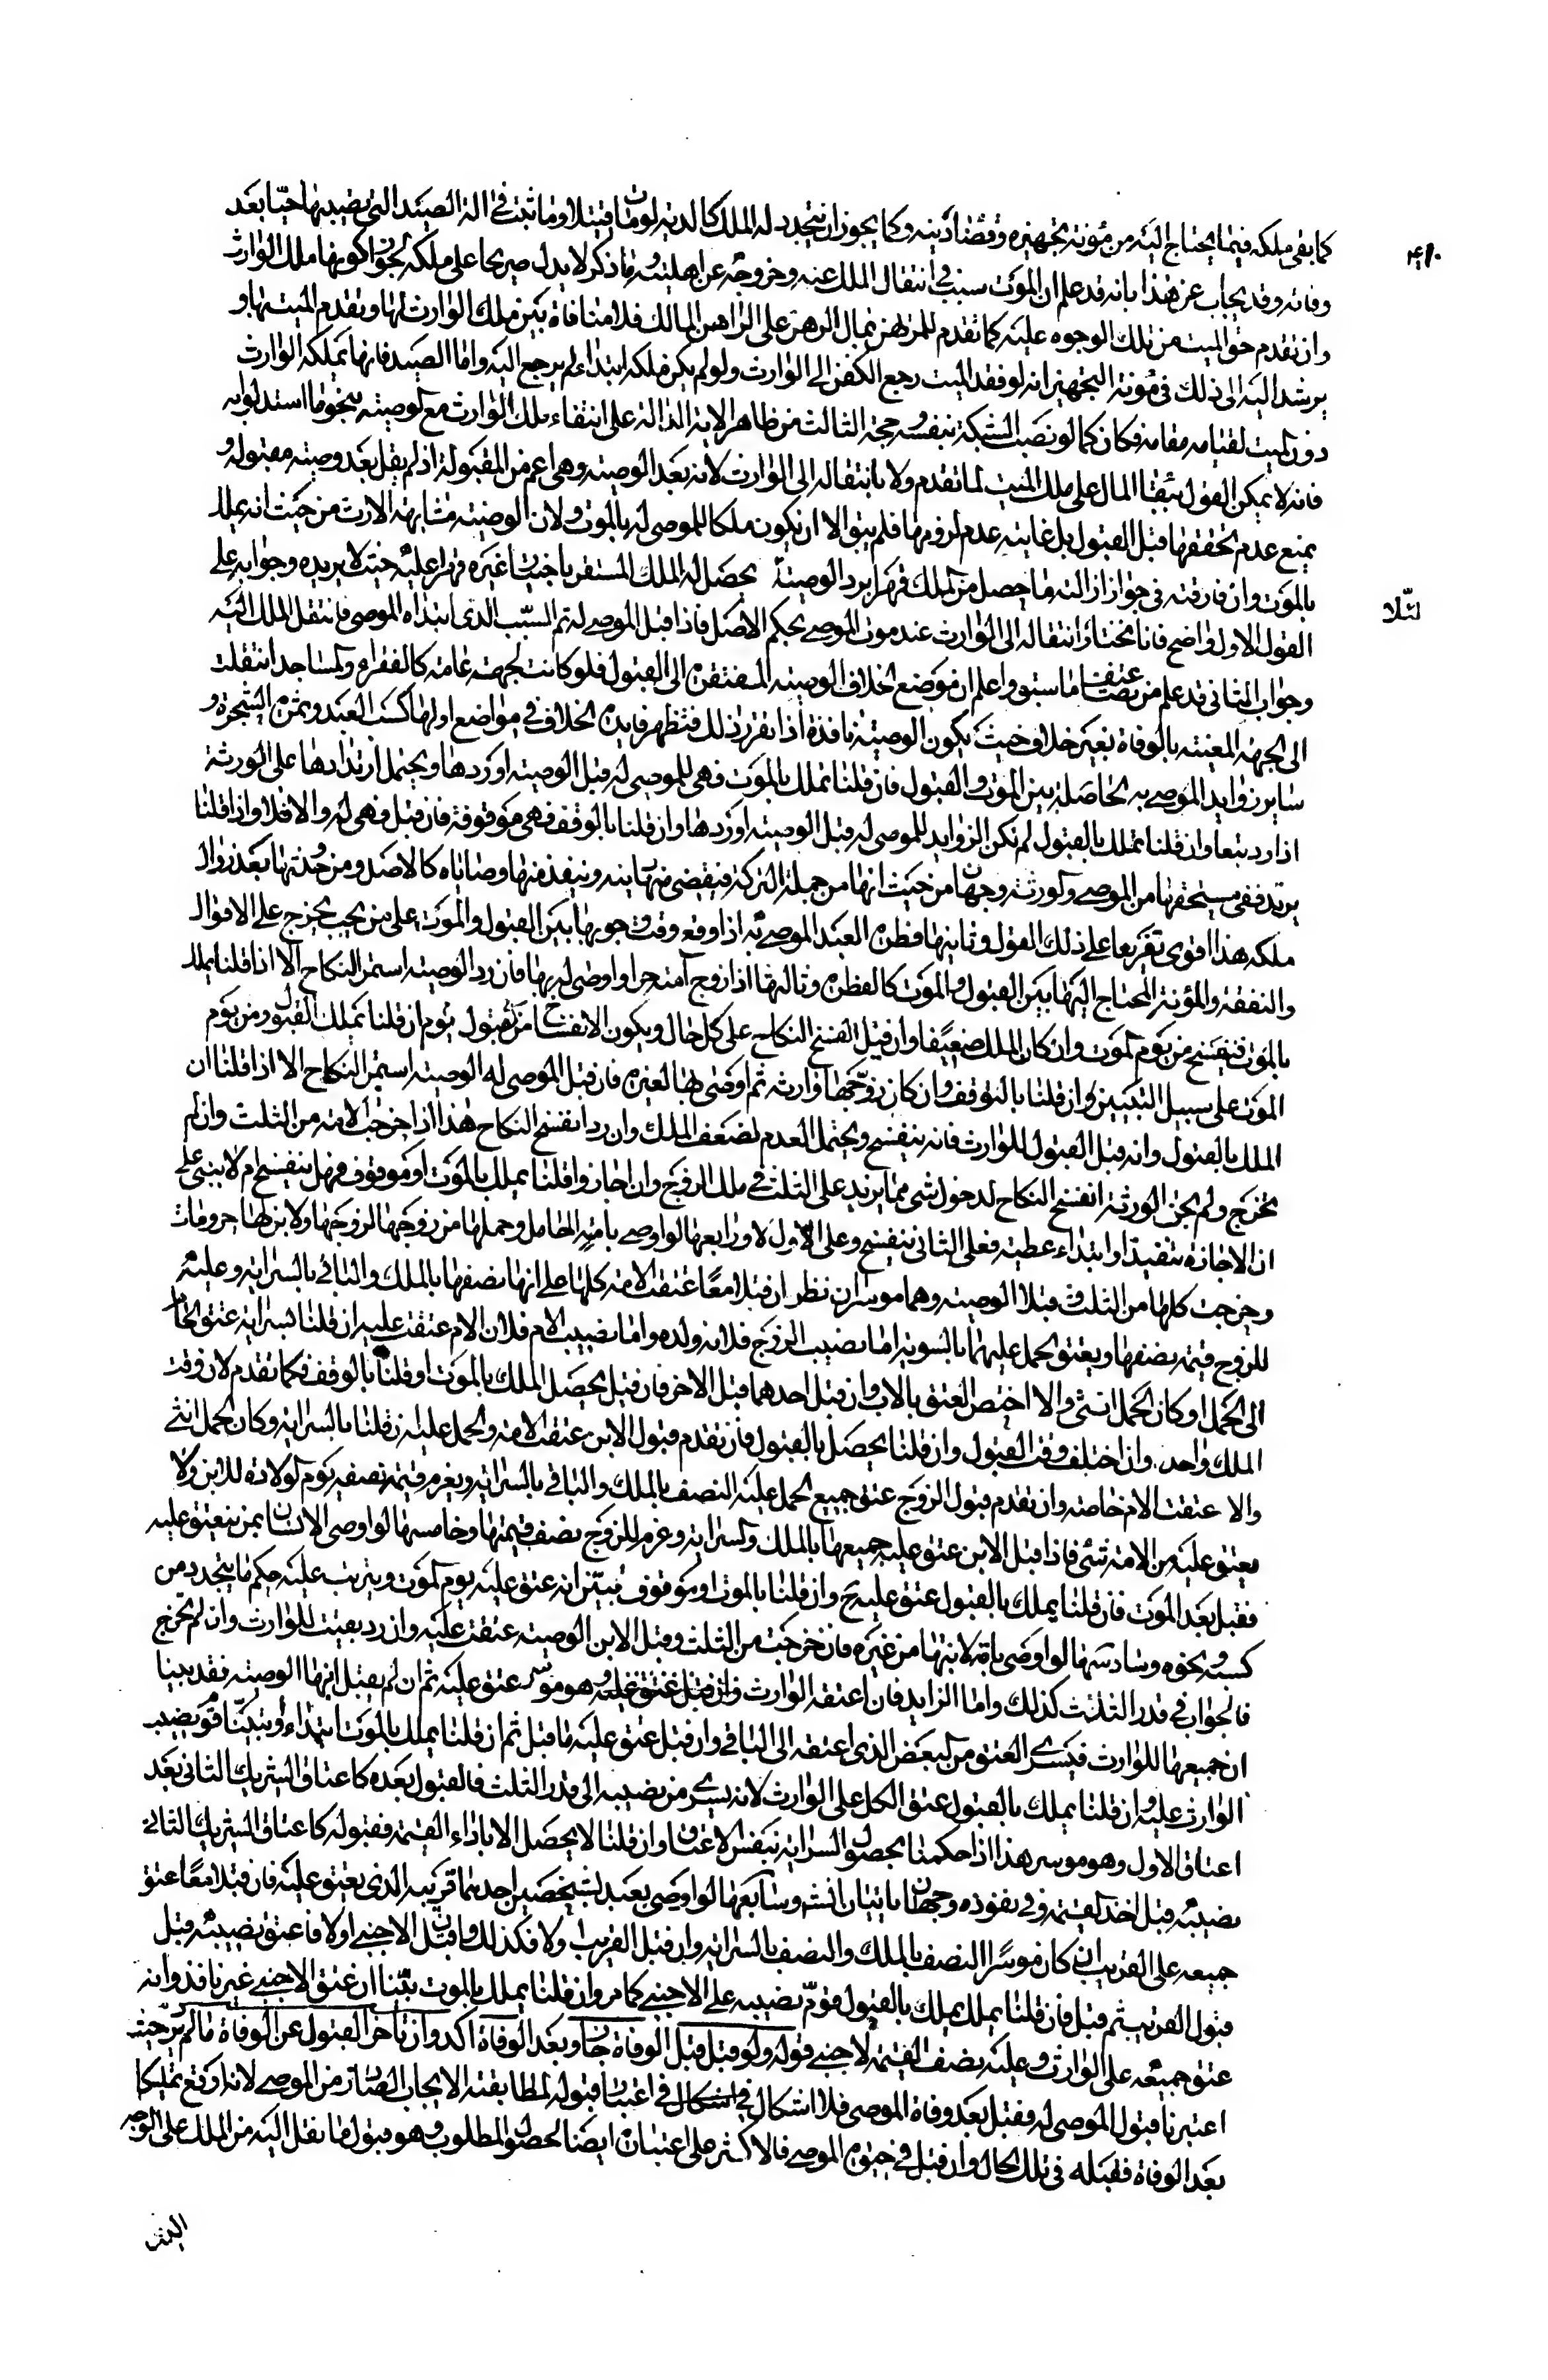 كما بقي ملكه فيما يحتاج اليه من مؤنة تجهيزه وقضاء دينه وكما يجوز ان يتجدد له الملك كالدية لو مات قتيلا وما ثبت في الة الصيد التي نصبها حيا بعد
٤٨٠
وفاته وقد يجاب عن هذا بانه قد علم ان الموت سبب في انتقال الملك عنه وخروجه عن اهليته وما ذكر لا يدل صريحا على ملكه لجواز كونها ملك الوارث
وان تقدم حق الميت من تلك الوجوه عليه كما تقدم للمرتهن بمال الرهن على الراهن المالك فلا منافاة بين ملك الوارث لها وتقدم الميت بها و
يرشد اليه الى ذلك في مؤنة التجهيز انه لو فقد الميت رجع الكفن الى الوارث ولو لم يكن ملكه ابتداء لم يرجع اليه واما الصيد فانها تملكه الوارث
دون الميت لقيامه مقامه فكان كما لو نصب الشبكة بنفسه حجة الثالث من ظاهر الاية الدالة على انتفاء ملك الوارث مع الوصية بنحو ما استدلوا به
فانه لا يمكن القول ببقاء المال على ملك الميت لما تقدم ولا بانتقاله الى الوارث لانه بعد الوصية وهي اعم من المقبولة اذ لم يقل بعد وصية مقبولة و
يمنع عدم تحققها قبل القبول بل غايته عدم لزومها فلم يبق الا ان يكون ملكا للموصى له بالموت ولان الوصية مشابهة الارث من حيث انه يملك
بالموت وان فارقته في جواز ازالته ما حصل من الملك قهرا برد الوصية يحصل له الملك المستقر باختيار غيره قهرا عليه حيث لا يريده وجوابه على
لئلا
القول الاول واضح فانا نختار انتقاله الى الوارث عند موت الموصي بحكم الاصل فاذا قبل الموصى له تم السبب الذي ابتداه الموصي فانتقل الملك اليه
وجواب الثاني قد علم من تضاعيف ما سبق واعلم ان موضع الخلاف الوصية المفتقرة الى القبول فلو كانت لجهة عامة كالفقراء والمساجد انتقلت
الى الجهة المعينة بالوفاة بغير خلاف حيث يكون الوصية نافذة اذا تقرر ذلك فتظهر فايدة الخلاف في مواضع اولها كسب العبد وثمرة الشجرة و
ساير زوايد الموصى به الحاصلة بين الموت والقبول فان قلنا تملك بالموت فهي للموصى له قبل الوصية او ردها ويحتمل ارتدادها على الورثة
اذا رد تبعا وان قلنا تملك بالقبول لم تكن الزوايد للموصى له قبل الوصية او ردها وان قلنا بالوقف فهي موقوفة فان قبل فهي له والا فلا واذا قلنا
يرتد ففي مستحقها من الموصي والورثة وجهان من حيث انها من جملة التركة فيقضى منها دينه وينفذ منها وصاياه كالاصل ومن حدوثها بعد زوال
ملكه هذا اقوى تفريعا على ذلك القول وثانيها فطرة العبد الموصى به اذا وقع وقت وجوبها بين القبول والموت على من يجب يخرج على الاقوال
والنفقة والمؤنة المحتاج اليها بين القبول والموت كالفطرة وثالثها اذا زوج امته حرا واوصى له بها فان رد الوصية استمر النكاح الا اذا قلنا يملك
بالموت فينفسخ من يوم الموت وان كان الملك ضعيفا وان قبل انفسخ النكاح على كل حال ويكون الانفساخ من القبول يوم ان قلنا تملك القبول ومن يوم
الموت على سبيل التبيين وان قلنا بالتوقف وان كان زوجها وارثه ثم اوصى بها لغيره فان قبل الموصى له الوصية استمر النكاح الا اذا قلنا ان
الملك بالقبول وانه قبل القبول للوارث فانه ينفسخ ويحتمل العدم لضعف الملك وان رد انفسخ النكاح هذا اذا خرجت الامة من الثلث وان لم
تخرج ولم يجز الورثة انفسخ النكاح لدخول شي مما يزيد على الثلث في ملك الزوج وان اجاز وا قلنا يملك بالموت او موقوف فهل ينفسخ ام لا يبنى على
ان الاجازة تنفيذ او ابتداء عطية فعلى الثاني ينفسخ وعلى الاول لا ورابعها لو اوصى بامته الحامل وحملها من زوجها لزوجها ولابن لها حر ومات
وخرجت كلها من الثلث وقبلا الوصية وهما موسران نظر ان قبلا معا عتقت الامة كلها على ابنها نصفها بالملك والباقي بالسراية وعليه
للزوج قيمة نصفها ويعتق الحمل عليهما بالسوية اما نصيب الزوج فلانه ولده واما نصيب الام فلان الام عتقت عليه ان قلنا بسراية عتق الحامل
الى الحمل او كان الحمل انثى والا اختص العتق بالاب وان قبل احدهما قبل الاخر فان قيل يحصل الملك بالموت او قلنا بالوقف فكما تقدم لان وقت
الملك واحد وان اختلف وقت القبول وان قلنا يحصل بالقبول فان تقدم قبول الابن عتقت الامة والحمل عليه ان قلنا بالسراية وكان الحمل انثى
والا عتقت الام خاصة وان تقدم قبول الزوج عتق جميع الحمل عليه النصف بالملك والباقي بالسراية ويغرم قيمة نصفه يوم الولادة للابن ولا
يعتق عليه من الامة شي فاذا قبل الابن عتق عليه جميعها بالملك والسراية وغرم للزوج نصف قيمتها وخامسها لو اوصى الانسان بمن ينعتق عليه
فقبل بعد الموت فان قلنا يملك بالقبول عتق عليه ح وان قلنا بالموت او موقوف تبين انه عتق عليه يوم الموت ويترتب عليه حكم ما يتجدد من
كسبه ونحوه وسادسها لو اوصى بامة لابنها من غيره فان خرجت من الثلث وقبل الابن الوصية عتقت عليه وان رد بقيت للوارث وان لم تخرج
فالجواب في قدر الثلث كذلك واما الزايد فان اعتقه الوارث وهو موسر عتق عليه ثم ان لم يقبل ابنها الوصية فقد بينا
ان جميعها للوارث فيسري العتق من البعض الذي اعتقه الى الباقي وان قبل عتق عليه ما قبل ثم ان قلنا يملك بالموت ابتداء او تبينا قوم نصيب
الوارث عليه وان قلنا يملك بالقبول عتق الكل على الوارث لانه يسري من نصيبه الى قدر الثلث فالقبول بعده كاعتاق الشريك الثاني بعد
اعتاق الاول وهو موسر هذا اذا حكمنا بحصول السراية بنفس الاعتاق وان قلنا لا يحصل الا باداء القيمة فقبوله كاعتاق الشريك الثاني
نصيبه قبل اخذ القيمة وفي نفوذه وجهان ياتيان انشـ وسابعها لو اوصى بعبد لشخصين احدهما قريبه الذي يعتق عليه فان قبلا معا عتق
جميعه على القريب ان كان موسرا النصف بالملك والنصف بالسراية وان قبل القريب اولا فكذلك وان قبل الاجنبي اولا فاعتق نصيبه قبل
قبول القريب ثم قبل فان قلنا يملك يملك بالقبول قوم نصيبه على الاجنبي كما مر وان قلنا يملك بالموت تبينا ان عتق الاجنبي غير نافذ وانه
عتق جميعه على الوارث وعليه نصف القيمة للاجنبي قوله ولو قبل قبل الوفاة جاز وبعد الوفاة اكد وان تاخر القبول عن الوفاة ما لم يرد حيث
اعتبرنا قبول الموصى له فقبل بعد وفاة الموصي فلا اشكال في اعتبار قبوله لمطابقته الايجاب الصادر من الموصي لانه اوقع تمليكا
بعد الوفاة فقبله في تلك الحال وان قبل في حيوة الموصي فالاكثر على اعتباره ايضا لحصول المطلوب وهو قبول ما نقل اليه من الملك على الوجه